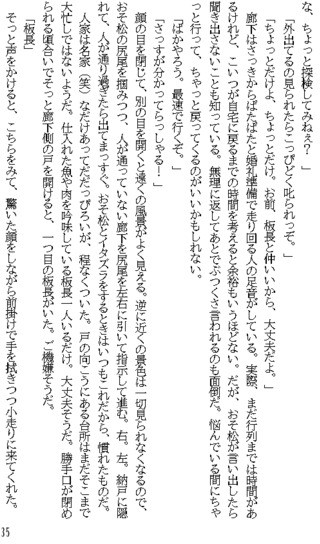 な、ちょっと探検してみねぇ？」
「外出てるの見られたらこっぴどく叱られっぞ。」
「ちょっとだけよ、ちょっとだけ。お前、板長と仲いいから、大丈夫だよ。」
廊下はさっきからぱたぱたと婚礼準備で走り回る人の足音がしている。実際、まだ行列までは時間があ
るけれど、こいつが自宅に戻るまでの時間を考えると余裕もいうほどない。だが、おそ松が言い出したら
聞き出さないことも知っている。無理に返してあとでぶつくさ言われるのも面倒だ。悩んでいる間にちゃ
っと行って、ちゃっと戻ってくるのがいいかもしれない。
「ばかやろう。最速で行くぞ。」
「さっすが分かってらっしゃる！」
顔の目を閉じて、別の目を開くと遠くの風景がよく見える。逆に近くの景色は一切見られなくなるので、
おそ松の尻尾を掴みつつ、人が通っていない廊下を尻尾を左右に引いて指示して進む。右、左。納戸に隠
れて、人が通り過ぎたら出てまっすぐ。おそ松とイタズラをするときはいつもこれだから、慣れたものだ。
人家は名家（笑）なだけあってだだっぴろいが、程なくついた。戸の向こうにある台所はまだそこまで
大忙しではないようだ。仕入れた魚や肉を吟味している板長一人いるだけ。大丈夫そうだ。勝手口が閉め
られる頃合いでそっと廊下側の戸を開けると、一つ目の板長がいた。ご機嫌そうだ。
「板長」
そっと声をかけると、こちらをみて、驚いた顔をしながら前掛けで手を拭きつつ小走りに来てくれた。
35